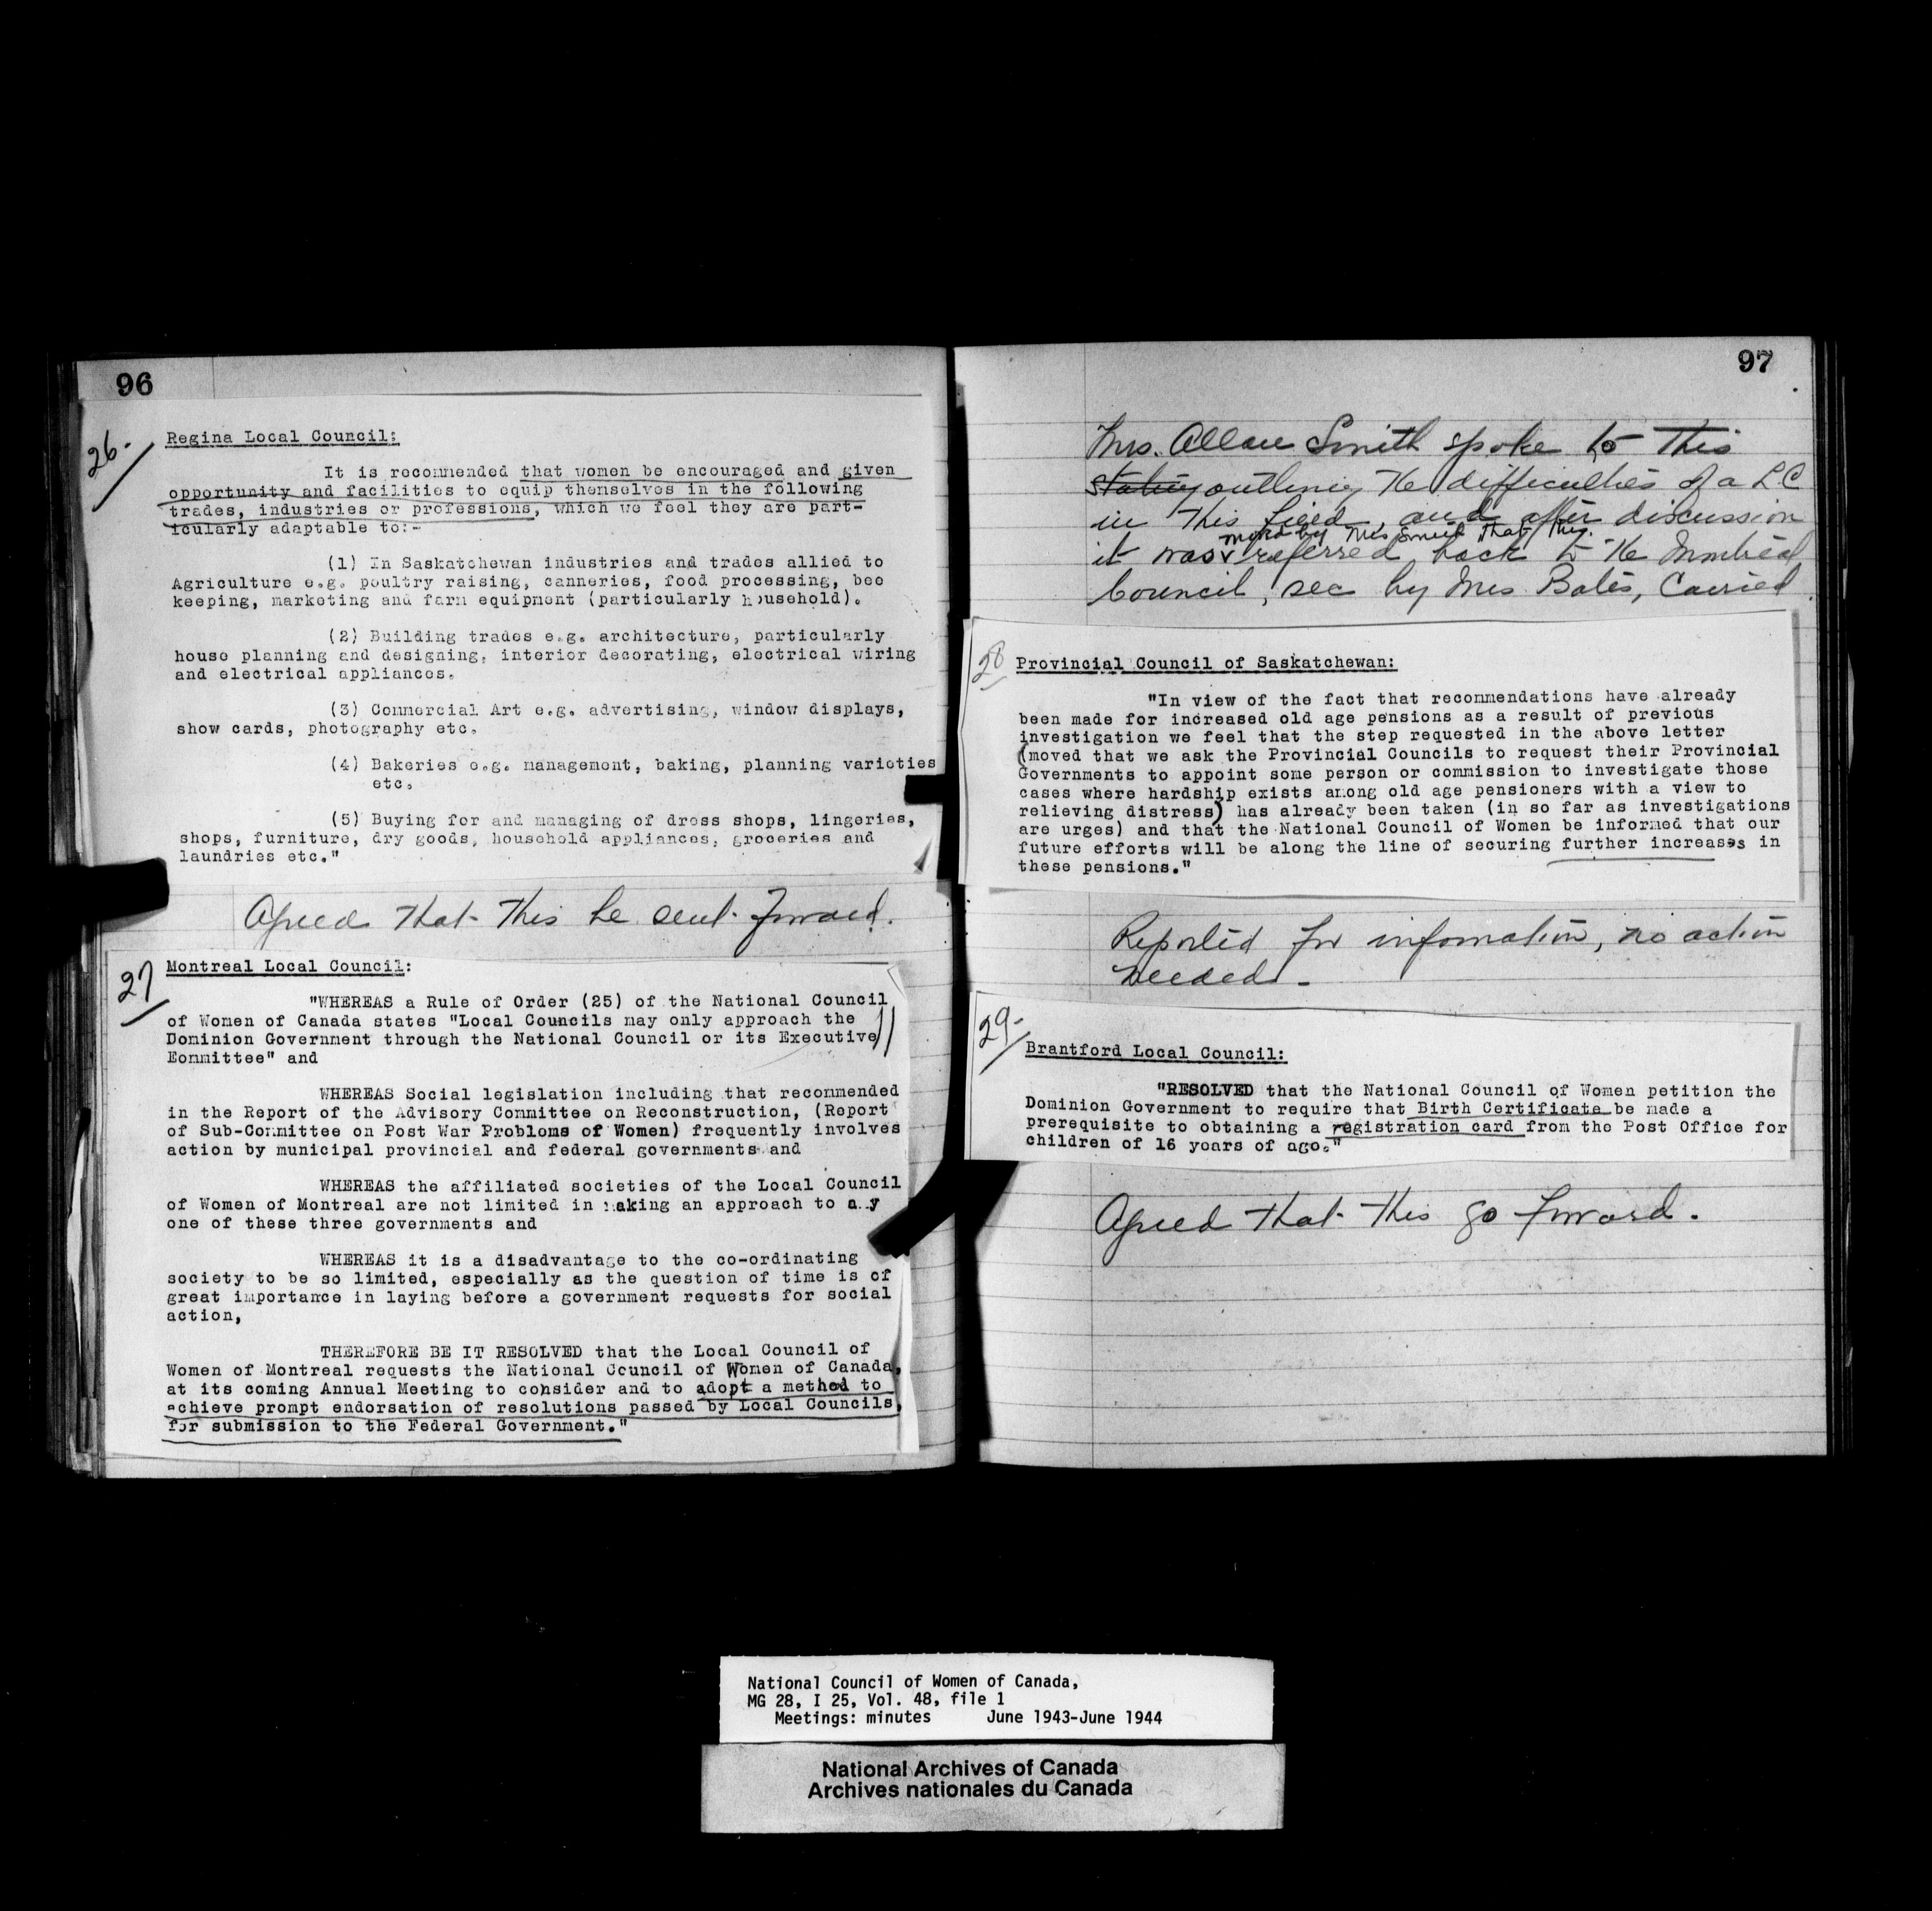 96
26-
Regina Local Council:
It is recommended that women be encouraged and given
opportunity and facilities to equip themselves in the following
trades, industries or professions, which we feel they are part-
icularly adaptable to:-
(1) In Saskatchewan industries and trades allied to
Agriculture e.g. poultry raising, canneries, food processing, bee
keeping, marketing and farm equipment (particularly household).
(2) Building trades e.g. architecture, particularly
house planning and designing, interior decorating, electrical wiring
and electrical appliances.
(3) Commercial Art e.g. advertising, window displays,
show cards, photography etc.
(4) Bakeries e.g. management, baking, planning varieties
etc.
(5) Buying for and managing of dress shops, lingeries,
shops, furniture, dry goods, household appliances, groceries and
laundries etc."
Agreed that this be sent forward.
27
Montreal Local Council:
"WHEREAS a Rule of Order (25) of the National Council
of Women of Canada states "Local Councils may only approach the
Dominion Government through the National Council or its Executive
Eommittee" and
WHEREAS Social legislation including that recommended
in the Report of the Advisory Committee on Reconstruction, (Report
of Sub-Committee on Post War Problems of Women) frequently involves
action by municipal provincial and federal governments and
WHEREAS the affiliated societies of the Local Council
of Women of Montreal are not limited in making an approach to any
one of these three governments and
WHEREAS it is a disadvantage to the co-ordinating
society to be so limited, especially as the question of time is of
great importance in laying before a government requests for social
action,
THEREFORE BE IT RESOLVED that the Local Council of
Women of Montreal requests the National Council of Women of Canada,
at its coming Annual Meeting to consider and to adopt a method to
achieve prompt endorsation of resolutions passed by Local Councils,
for submission to the Federal Government."
97
Mrs. Allan Smith spoke to this
stating outlining the difficulties of a L C
in this field, and after discussion
moved by Mrs Smith that this
it was referred back to the Montreal
Council, sec by Mrs Bates, Carried.
28
Provincial Council of Saskatchewan:
"In view of the fact that recommendations have already
been made for increased old age pensions as a result of previous
investigation we feel that the step requested in the above letter
(moved that we ask the Provincial Councils to request their Provincial
Governments to appoint some person or commission to investigate those
cases where hardship exists among old age pensioners with a view to
relieving distress) has already been taken (in so far as investigations
are urges) and that the National Council of Women be informed that our
future efforts will be along the line of securing further increases in
these pensions."
Reported for information, no action
needed.
29-
Brantford Local Council:
"RESOLVED that the National Council of Women petition the
Dominion Government to require that Birth Certificate be made a
prerequisite to obtaining a registration card from the Post Office for
children of 16 years of age."
Agreed that this go forward.
National Council of Women of Canada,
MG 28, I 25, Vol. 48, file 1
Meetings: minutes June 1943-June 1944
National Archives of Canada
Archives nationales du Canada